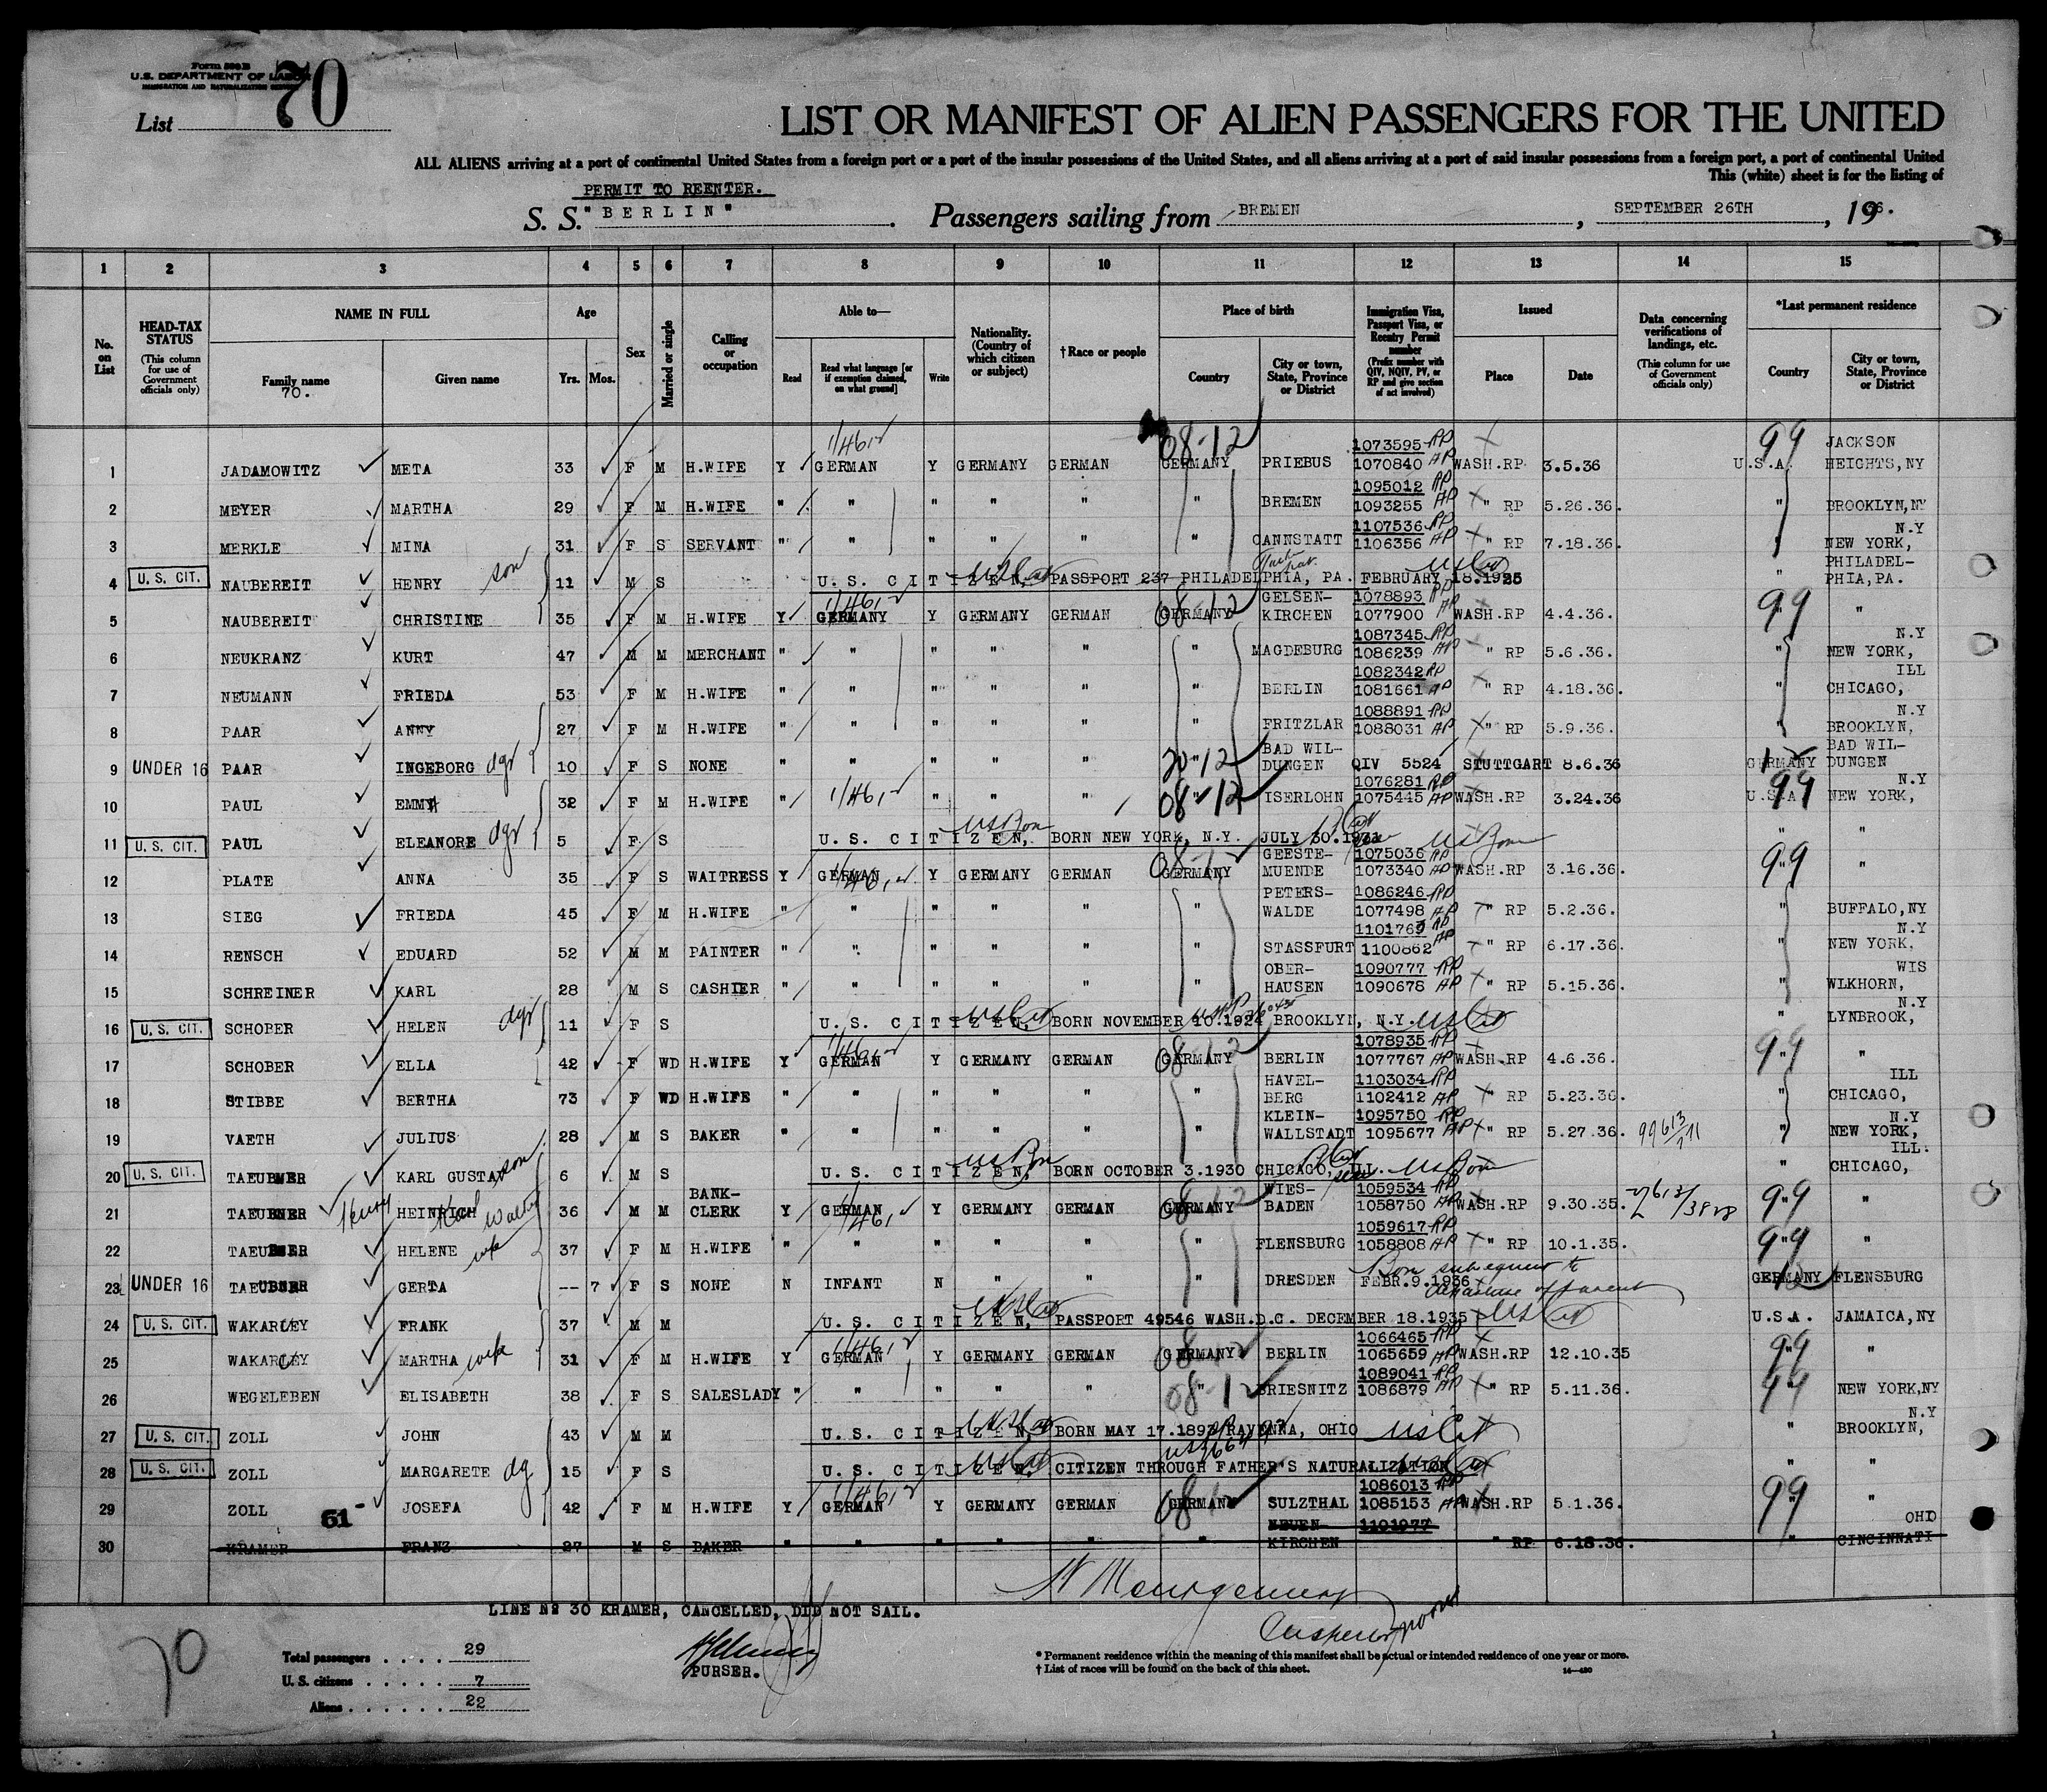 Form 500 B
U.S. DEPARTMENT OF LABOR
IMMIGRATION AND NATURALIZATION SERVICE
List 70
LIST OR MANIFEST OF ALIEN PASSENGERS FOR THE UNITED
ALL ALIENS arriving at a port of continental United States from a foreign port or a port of the insular possessions of the United States, and all aliens arriving at a port of said insular possessions from a foreign port, a port of continental United
This (white) sheet is for the listing of
PERMIT TO REENTER.
S. S. "BERLIN" . Passengers sailing from BREMEN , SEPTEMBER 26TH , 1936.
1 2 3 4 5 6 7 8 9 10 11 12 13 14 15
No. on List
HEAD-TAX STATUS (This column for use of Government officials only)
NAME IN FULL
Family name 70.
Given name
Age
Yrs. Mos.
Sex
Married or single
Calling or occupation
Able to—
Read
Read what language [or if exemption claimed, on what ground]
Write
Nationality. (Country of which citizen or subject)
†Race or people
Place of birth
Country
City or town, State, Province or District
Immigration Visa, Passport Visa, or Reentry Permit number (Prefix number with QIV, NQIV, PV, or RP and give section of act involved)
Issued
Place
Date
Data concerning verifications of landings, etc. (This column for use of Government officials only)
*Last permanent residence
Country
City or town, State, Province or District
1 JADAMOWITZ META 33 F M H.WIFE Y GERMAN Y GERMANY GERMAN 08-12 GERMANY PRIEBUS 1073595 RP 1070840 AP WASH.RP 3.5.36 99 U.S.A. JACKSON HEIGHTS,NY
2 MEYER MARTHA 29 F M H.WIFE " " " " " " BREMEN 1095012 RP 1093255 AP " RP 5.26.36. " BROOKLYN,NY
3 MERKLE MINA 31 F S SERVANT " " " " " " CANNSTATT 1107536 RP 1106356 AP " RP 7.18.36. " N.Y NEW YORK,
4 U. S. CIT. NAUBEREIT HENRY son 11 M S U. S. CITIZEN, PASSPORT 237 PHILADELPHIA, PA. FEBRUARY 18.1925 US Cit " PHILADEL-PHIA,PA.
5 NAUBEREIT CHRISTINE 35 F M H.WIFE Y GERMANY Y GERMANY GERMAN 08-12 GERMANY GELSEN-KIRCHEN 1078893 RP 1077900 AP WASH.RP 4.4.36. 99 " "
6 NEUKRANZ KURT 47 M M MERCHANT " " " " " " MAGDEBURG 1087345 RP 1086239 AP " RP 5.6.36. " N.Y NEW YORK,
7 NEUMANN FRIEDA 53 F M H.WIFE " " " " " " BERLIN 1082342 RP 1081661 AP " RP 4.18.36. " ILL CHICAGO,
8 PAAR ANNY 27 F M H.WIFE " " " " " " FRITZLAR 1088891 RP 1088031 AP " RP 5.9.36. " N.Y BROOKLYN,
9 UNDER 16 PAAR INGEBORG dgr 10 F S NONE " " " " " 20-12 " BAD WIL-DUNGEN QIV 5524 STUTTGART 8.6.36 12 GERMANY BAD WIL-DUNGEN
10 PAUL EMMY 32 F M H.WIFE " " " " 08-12 ISERLOHN 1076281 RP 1075445 AP WASH.RP 3.24.36 99 U.S.A N.Y NEW YORK,
11 U. S. CIT. PAUL ELEANORE dgr 5 F S U. S. CITIZEN, BORN NEW YORK, N.Y. JULY 30.1931 US Born " "
12 PLATE ANNA 35 F S WAITRESS Y GERMAN Y GERMANY GERMAN 08-12 GERMANY GEESTE-MUENDE 1075036 RP 1073340 AP WASH.RP 3.16.36. 99 " "
13 SIEG FRIEDA 45 F M H.WIFE " " " " " " PETERS-WALDE 1086246 RP 1077498 AP " RP 5.2.36. " BUFFALO,NY
14 RENSCH EDUARD 52 M M PAINTER " " " " " " STASSFURT 1101769 RP 1100862 AP " RP 6.17.36. " N.Y NEW YORK,
15 SCHREINER KARL 28 M S CASHIER " " " " " " OBER-HAUSEN 1090777 RP 1090678 AP " RP 5.15.36. " WIS WLKHORN,
16 U. S. CIT. SCHOBER HELEN dgr 11 F S U. S. CITIZEN, BORN NOVEMBER 10.1924 BROOKLYN, N.Y. US Cit " N.Y LYNBROOK,
17 SCHOBER ELLA 42 F WD H.WIFE Y GERMAN Y GERMANY GERMAN 08-12 GERMANY BERLIN 1078935 RP 1077767 AP WASH.RP 4.6.36. 99 " "
18 STIBBE BERTHA 73 F WD H.WIFE " " " " " " HAVEL-BERG 1103034 RP 1102412 AP " RP 5.23.36. " ILL CHICAGO,
19 VAETH JULIUS 28 M S BAKER " " " " " " KLEIN-WALLSTADT 1095750 RP 1095677 AP " RP 5.27.36. " N.Y NEW YORK,
20 U. S. CIT. TAEUBNER KARL GUSTAV son 6 M S U. S. CITIZEN, BORN OCTOBER 3.1930 CHICAGO, ILL. US Born " ILL. CHICAGO,
21 TAEUBNER Henry HEINRICH Karl Walter 36 M M BANK-CLERK Y GERMAN Y GERMANY GERMAN 08-12 GERMANY WIES-BADEN 1059534 RP 1058750 AP WASH.RP 9.30.35. 99 " "
22 TAEUBNER HELENE wife 37 F M H.WIFE " " " " " " FLENSBURG 1059617 RP 1058808 AP " RP 10.1.35. 99 " "
23 UNDER 16 TAEUBNER GERTA -- 7 F S NONE N INFANT N " " " DRESDEN FEBR.9.1936 Born subsequent to departure of parent 12 GERMANY FLENSBURG
24 U. S. CIT. WAKARLEY FRANK 37 M M U. S. CITIZEN, PASSPORT 49546 WASH.D.C. DECEMBER 18.1935 US Cit U.S.A. JAMAICA,NY
25 WAKARLEY MARTHA wife 31 F M H.WIFE Y GERMAN Y GERMANY GERMAN 08-12 GERMANY BERLIN 1066465 RP 1065659 AP WASH.RP 12.10.35 99 " "
26 WEGELEBEN ELISABETH 38 F S SALESLADY " " " " " 08-12 " BRIESNITZ 1089041 RP 1086879 AP " RP 5.11.36. " NEW YORK,NY
27 U. S. CIT. ZOLL JOHN 43 M M U. S. CITIZEN, BORN MAY 17.1893 RAVENNA, OHIO US Cit " N.Y BROOKLYN,
28 U. S. CIT. ZOLL MARGARETE dg 15 F S U. S. CITIZEN, CITIZEN THROUGH FATHER'S NATURALIZATION " "
29 ZOLL 61- JOSEFA 42 F M H.WIFE Y GERMAN Y GERMANY GERMAN 08-12 GERMANY SULZTHAL 1086013 RP 1085153 AP WASH.RP 5.1.36. 99 " "
30 KRAMER FRANZ 27 M S BAKER " " " " " " NEUEN-KIRCHEN 1101977 " RP 6.18.36. " OHIO CINCINNATI
LINE No 30 KRAMER, CANCELLED, DID NOT SAIL.
70
Total passengers . . . . 29
U. S. citizens . . . . . 7
Aliens . . . . . . 22
PURSER.
* Permanent residence within the meaning of this manifest shall be actual or intended residence of one year or more.
† List of races will be found on the back of this sheet.
14—430